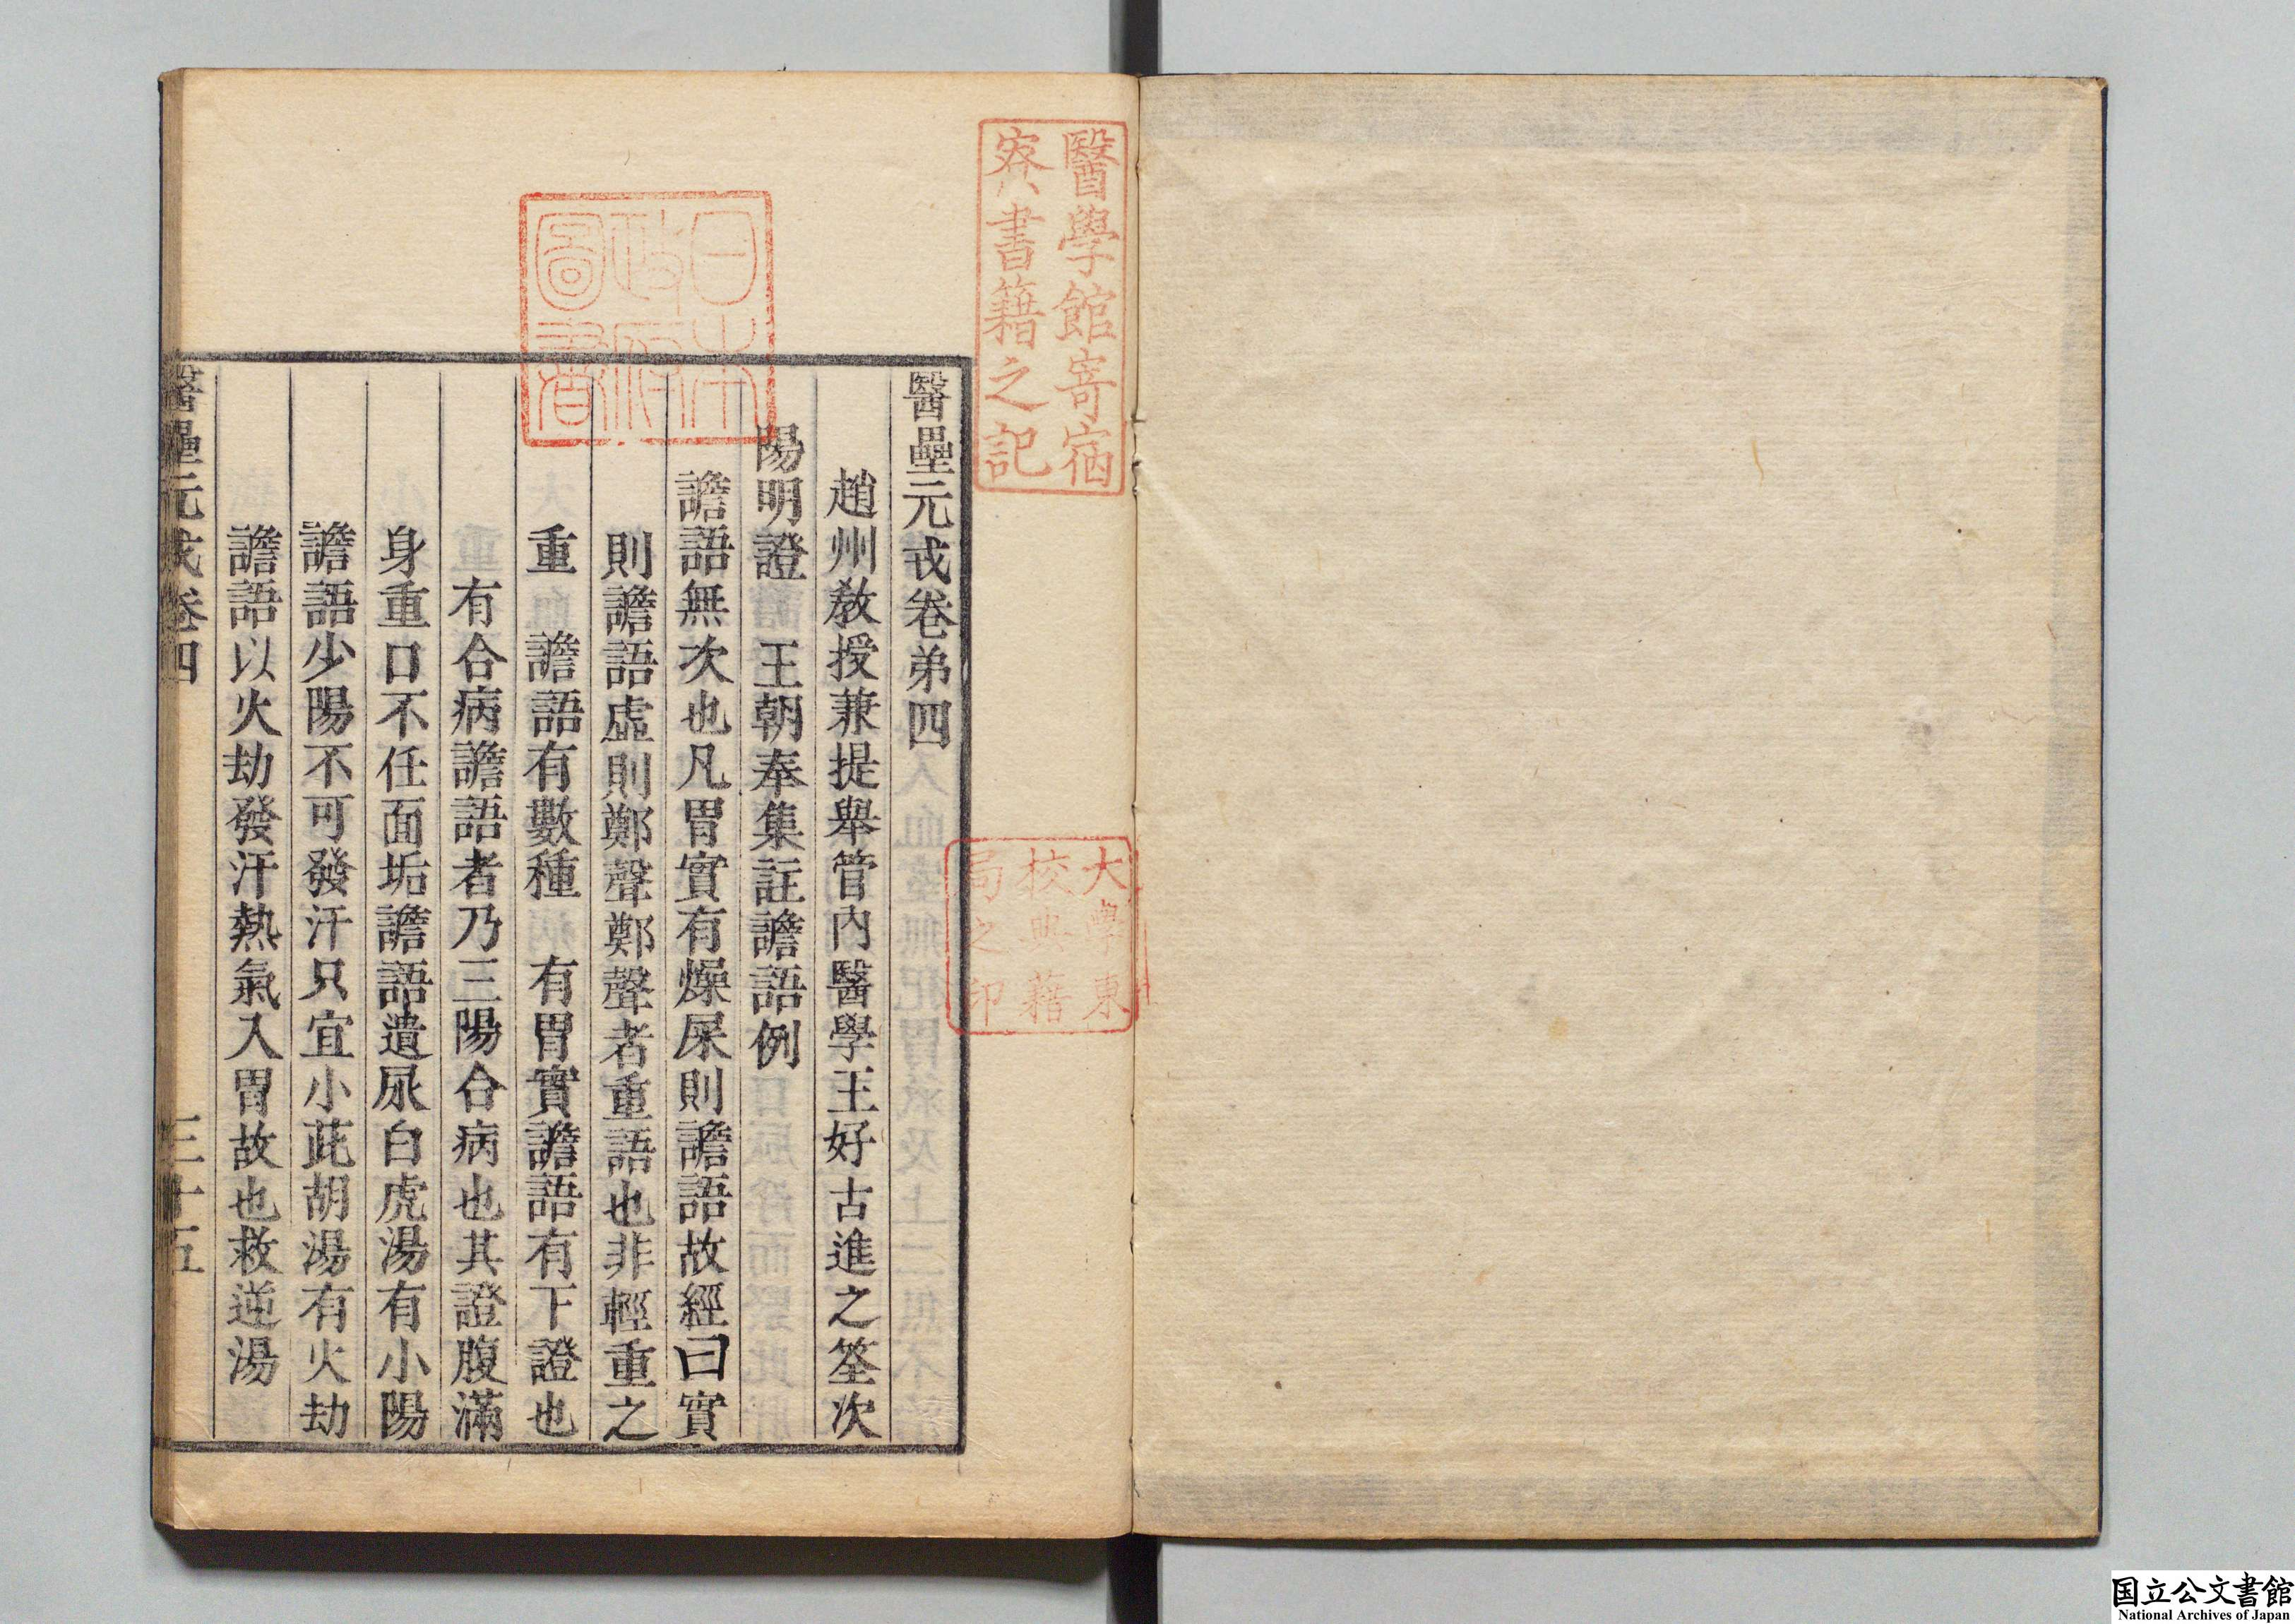 醫壘元戎卷弟四
趙州敎授兼提舉管內醫學王好古進之筌次
陽明證　王朝奉集註譫語例
譫語無次也凡胃實有燥屎則譫語故經曰實
則譫語虛則鄭聲鄭聲者重語也非輕重之
重　譫語有數種　有胃實譫語有下證也
有合病譫語者乃三陽合病也其證腹滿
身重口不任面垢譫語遺尿白虎湯有小陽
譫語少陽不可發汗只宜小茈胡湯有火劫
譫語以火劫發汗熱氣入胃故也救逆湯
醫壘元戎卷四
三十五
醫學館寄宿
寮書籍之記
日本
政府
圖書
大學東
校典籍
局之印
国立公文書館
National Archives of Japan